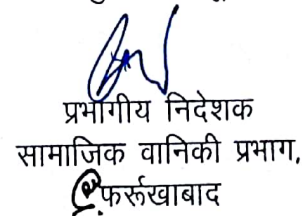 प्रभागीय निदेशक
सामाजिक वानिकी प्रभाग,
फर्रूखाबाद